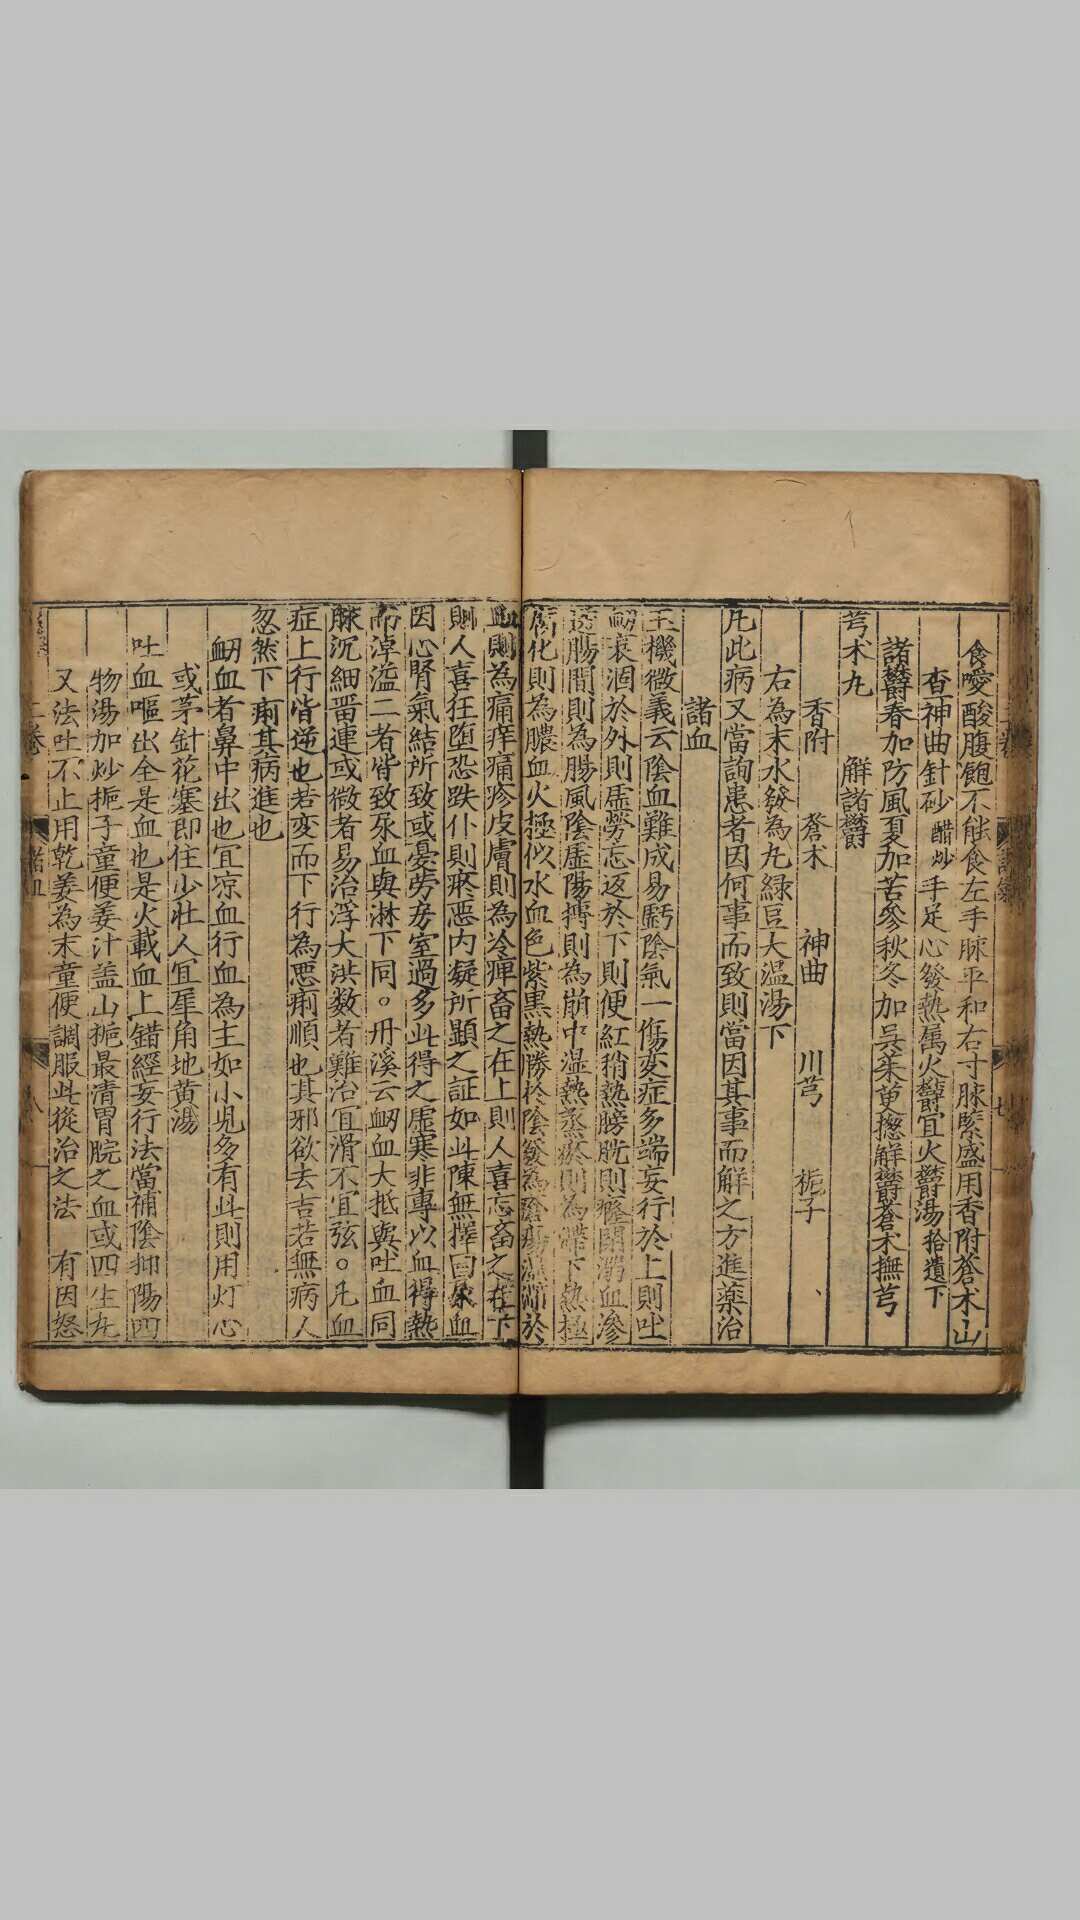 食噯酸腹飽不能食左手脉平和右寸脉緊盛用香附蒼术山
查神曲針砂醋炒手足心發熱属火欝宜火欝湯拾遺下
諸欝春加防風夏加苦參秋冬加吳茱萸揔解欝蒼术撫芎
芎术丸 解諸欝
香附 蒼术 神曲 川芎 梔子
右為末水發為丸綠豆大温湯下
凡此病又當詢患者因何事而致則當因其事而解之方進藥治
諸血
玉機微義云陰血難成易虧陰氣一傷変症多端妄行於上則吐
衂衰涸於外則虛勞忘返於下則便紅稍熱膀胱則癃閉溺血滲
透腸間則為腸風陰虛陽搏則為崩中湿熱蒸瘀則為滯下熱極
腐化則為膿血火極似水血色紫黒熱勝於陰發為瘡瘍湿滯於
血則為痛痒痛疹皮膚則為冷痺畜之在上則人喜忘畜之在下
則人喜狂堕恐跌仆則瘀惡内凝所顯之証如此陳無擇曰尿血
因心腎氣結所致或憂劳房室過多此得之虛寒非專以血得熱
而淖溢二者皆致尿血與淋下同○丹溪云衂血大抵與吐血同
脉沉細啬連或微者易治浮大洪数者難治宜滑不宜弦○凡血
症上行皆逆也若変而下行為悪痢順也其邪欲去吉若無病人
忽然下痢其病進也
衂血者鼻中出也宜凉血行血為主如小児多有此則用灯心
或茅針花塞即住少壮人宜犀角地黄湯
吐血嘔出全是血也是火載血上錯經妄行法當補陰抑陽四
物湯加炒梔子童便姜汁盖山梔最清胃脘之血或四生丸
又法吐不止用乾姜為末童便調服此從治之法 有因怒
二卷 諸血 八